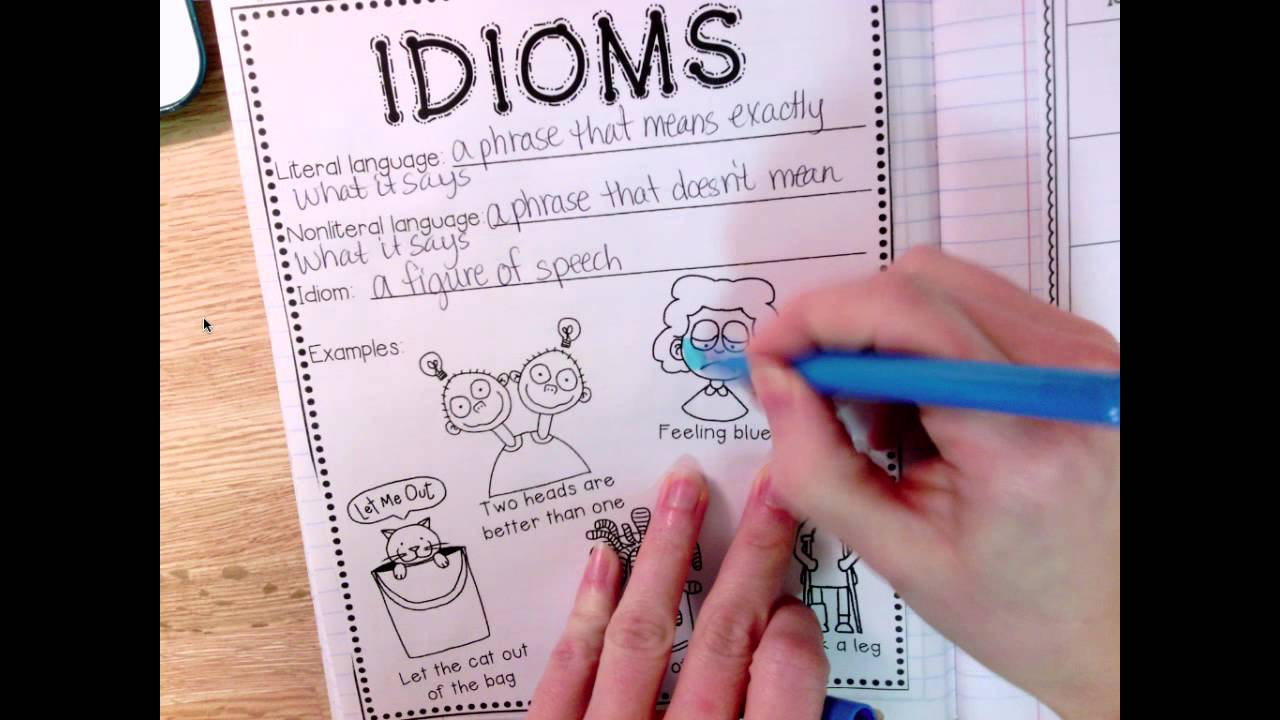 IDIOMS
Literal language: a phrase that means exactly
what it says
Nonliteral language: a phrase that doesn't mean
what it says
Idiom: a figure of speech
Examples:
Feeling blue
Let Me Out
Two heads are
better than one
Let the cat out
of the bag
a leg